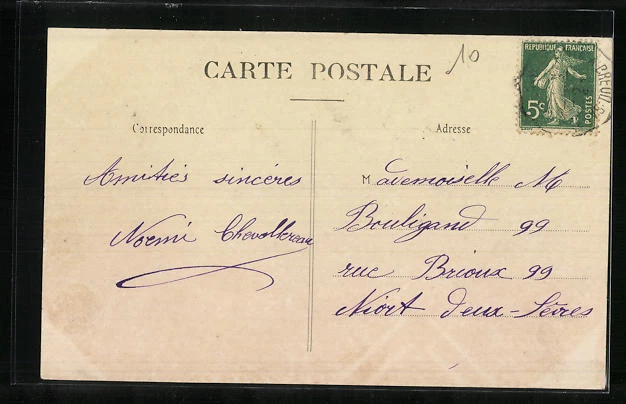 10
CARTE POSTALE
REPUBLIQUE FRANÇAISE
5c
POSTES
BREUIL
Correspondance
Adresse
Amitiés sincères
Noémi
Mademoiselle M
Bouligand 99
rue Brioux 99
Niort Deux-Sèvres